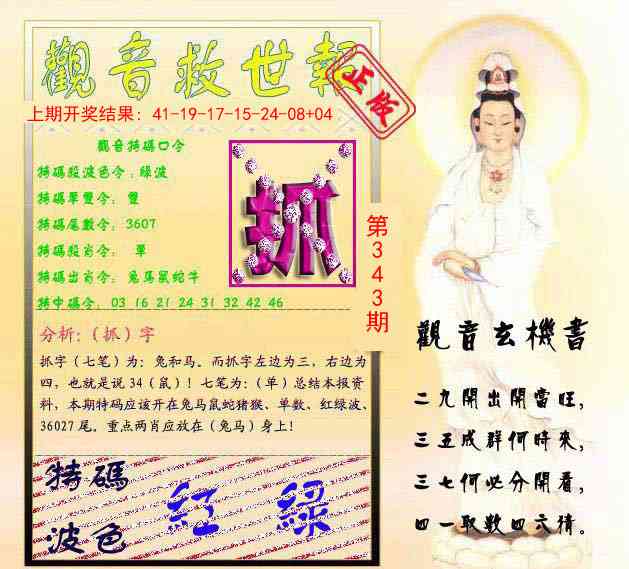 觀音救世報
正版
上期开奖结果：41-19-17-15-24-08+04
觀音特碼口令
特碼段波色令：綠波
特碼單雙令： 雙
特碼尾數令：3607
特碼段肖令： 單
特碼出肖令：兔马鼠蛇牛
特中碼令：03 16 21 24 31 32 42 46
抓
第343期
分析：（抓）字
抓字（七笔）为：兔和马。而抓字左边为三，右边为
四，也就是说34（鼠）！七笔为：（单）总结本报资
料，本期特码应该开在兔马鼠蛇猪猴、单数、红绿波、
36027尾。重点两肖应放在（兔马）身上！
特碼
波色
紅 綠
觀音玄機書
二九開出開當旺，
三五成群何時來，
三七何必分開看，
四一取數四六猜。